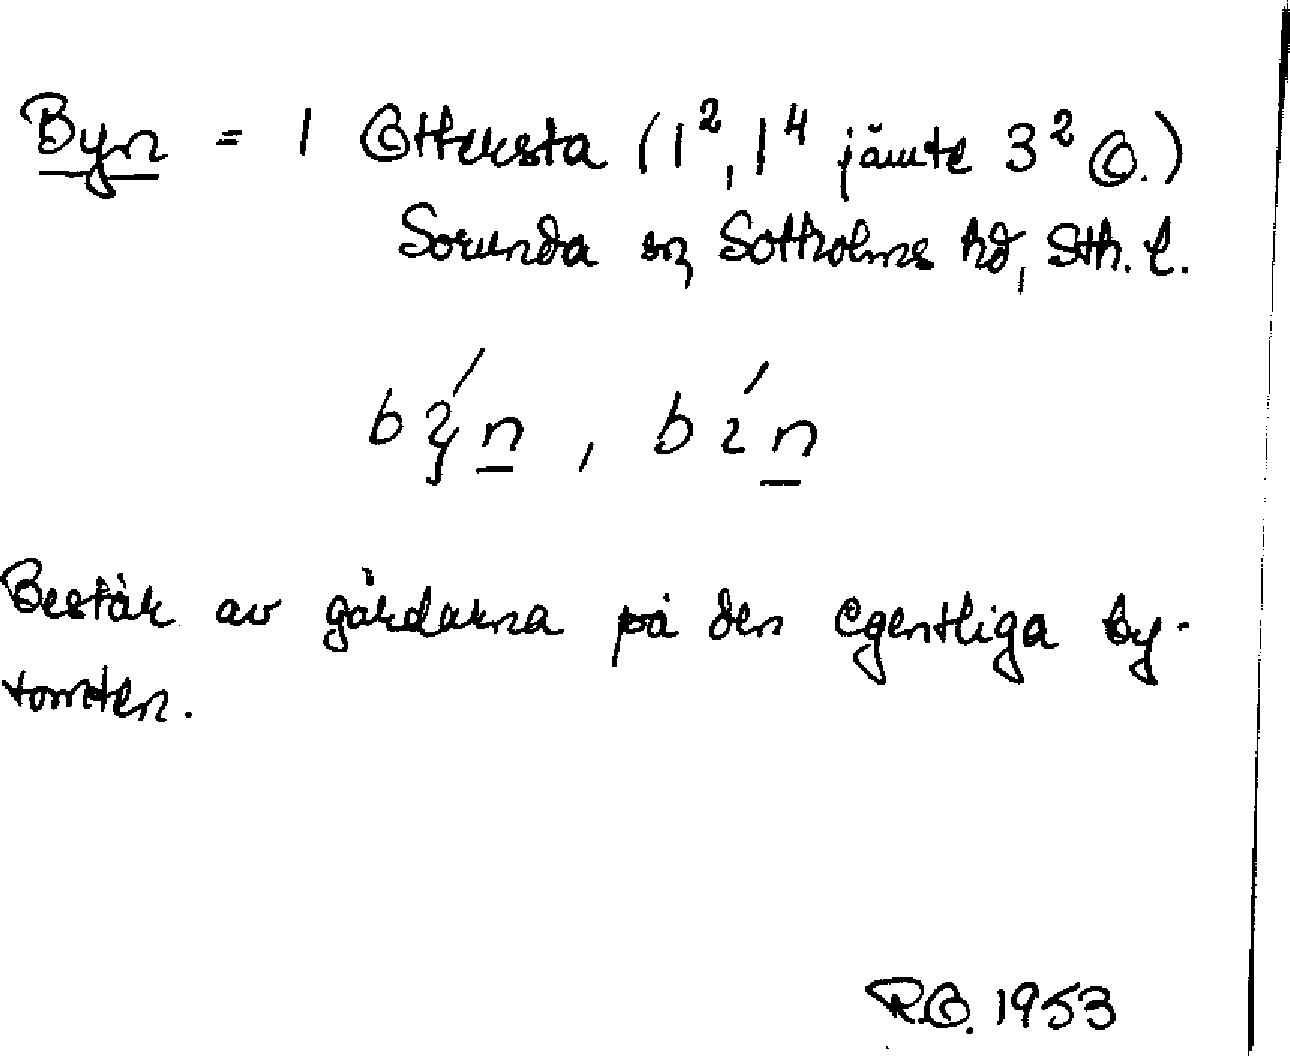 Byn = 1 Ottersta (1², 1⁴ jämte 3² O.)
Sorunda sn, Sotholms hd, Sth. l.
b n, b n
Består av gårdarna på den egentliga by-
tomten.
R.O. 1953